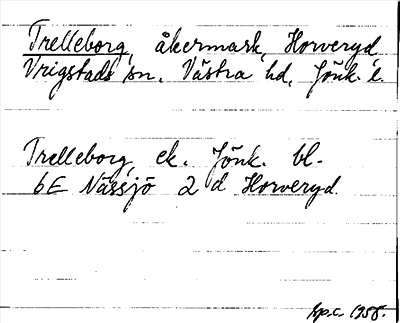 Trelleborg, åkermark, Horveryd
Vrigstads sn. Västra hd. Jönk. l.
Trelleborg, ek. Jönk. bl.
6E Nässjö 2 d Horveryd.
1958.